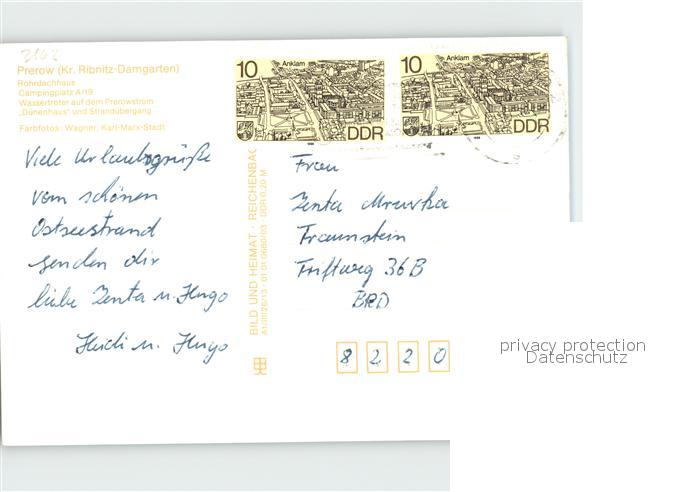 2162
Prerow (Kr. Ribnitz-Damgarten)
Rohrdachhaus
Campingplatz A/19
Wassertreter auf dem Prerowstrom
„Dünenhaus" und Strandübergang
Farbfotos: Wagner, Karl-Marx-Stadt
10 Anklam DDR
10 Anklam DDR
Viele Urlaubsgrüße
vom schönen
Ostseestrand
senden dir
liebe Zenta u. Hugo
Heidi u. Hugo
BILD UND HEIMAT · REICHENBAC
DDR 0,20 M
Frau
Zenta Mrowka
Traunstein
Triftweg 36B
BRD
8 2 2 0
privacy protection
Datenschutz